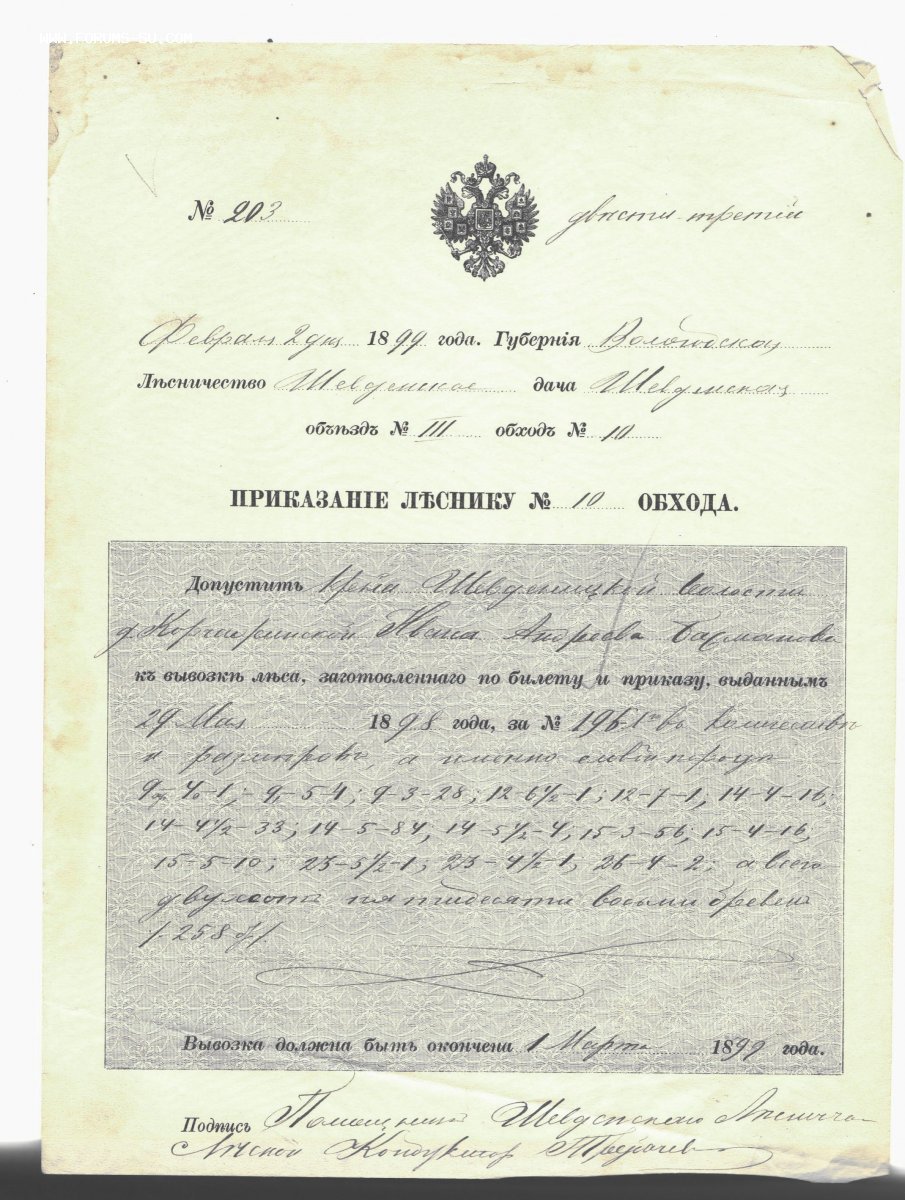 WWW.FORUMS-SU.COM
№ 203 двѣсти третій
Февраля 2 дня 1899 года. Губернія Вологодская
Лѣсничество Шевденское дача Шевденская
объѣздъ № III обходъ № 10
ПРИКАЗАНІЕ ЛѢСНИКУ № 10 ОБХОДА.
Допустить Шевденицкой волости
д. Ивана Андреева
къ вывозкѣ лѣса, заготовленнаго по билету и приказу, выданнымъ
29 Мая 1898 года, за № въ количествѣ
и размѣровъ, а именно
9-3-28; 12-6½-1; 12-7-1; 14-4-16;
14-4½-33; 14-5-84; 14-5½-4; 15-3-56; 15-4-16;
15-5-10; 23-5½-1; 23-4½-1; 26-4-2; а всего
двухсотъ пятидесяти восьми бревенъ
/258 б/.
Вывозка должна быть окончена 1 Марта 1899 года.
Подпись Помощникъ Шевденскаго Лѣсничаго
Лѣсной Кондукторъ